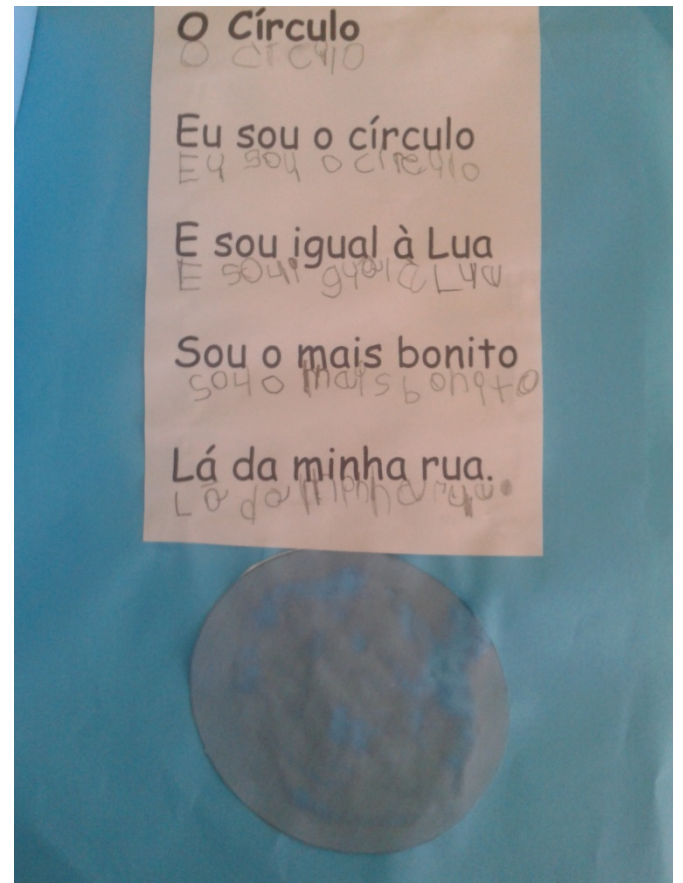 O Círculo
O CIrCUlO
Eu sou o círculo
EU sou o círeulo
E sou igual à Lua
E soui gual à Lua
Sou o mais bonito
sou o mais bonito
Lá da minha rua.
Lá da minha rua.